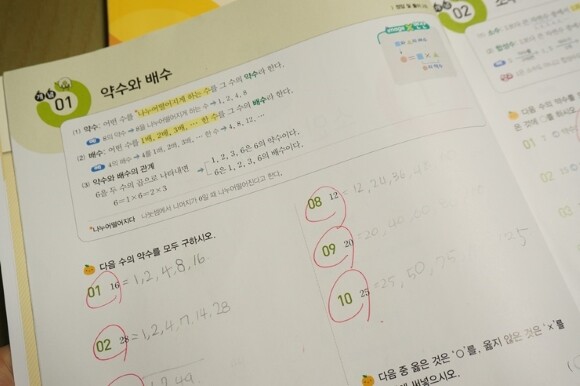 개념
01
약수와 배수
(1) 약수: 어떤 수를 *나누어떨어지게 하는 수를 그 수의 약수라 한다.
8의 약수 ➔ 8을 나누어떨어지게 하는 수 ➔ 1, 2, 4, 8
(2) 배수: 어떤 수를 1배, 2배, 3배, … 한 수를 그 수의 배수라 한다.
4의 배수 ➔ 4를 1배, 2배, 3배, … 한 수 ➔ 4, 8, 12, …
(3) 약수와 배수의 관계
6을 두 수의 곱으로 나타내면
6=1×6=2×3
1, 2, 3, 6은 6의 약수이다.
6은 1, 2, 3, 6의 배수이다.
*나누어떨어지다 나눗셈에서 나머지가 0일 때 나누어떨어진다고 한다.
다음 수의 약수를 모두 구하시오.
01 16 = 1, 2, 4, 8, 16
02 28 = 1, 2, 4, 7, 14, 28
08 12 = 12, 24, 36,
09 20 = 20, 40,
10 25 = 25, 50, 75,
25
다음 중 옳은 것은 '○'를, 옳지 않은 것은 '×'를
써넣으시오.
02
다음 수의 약수를
01
02
03